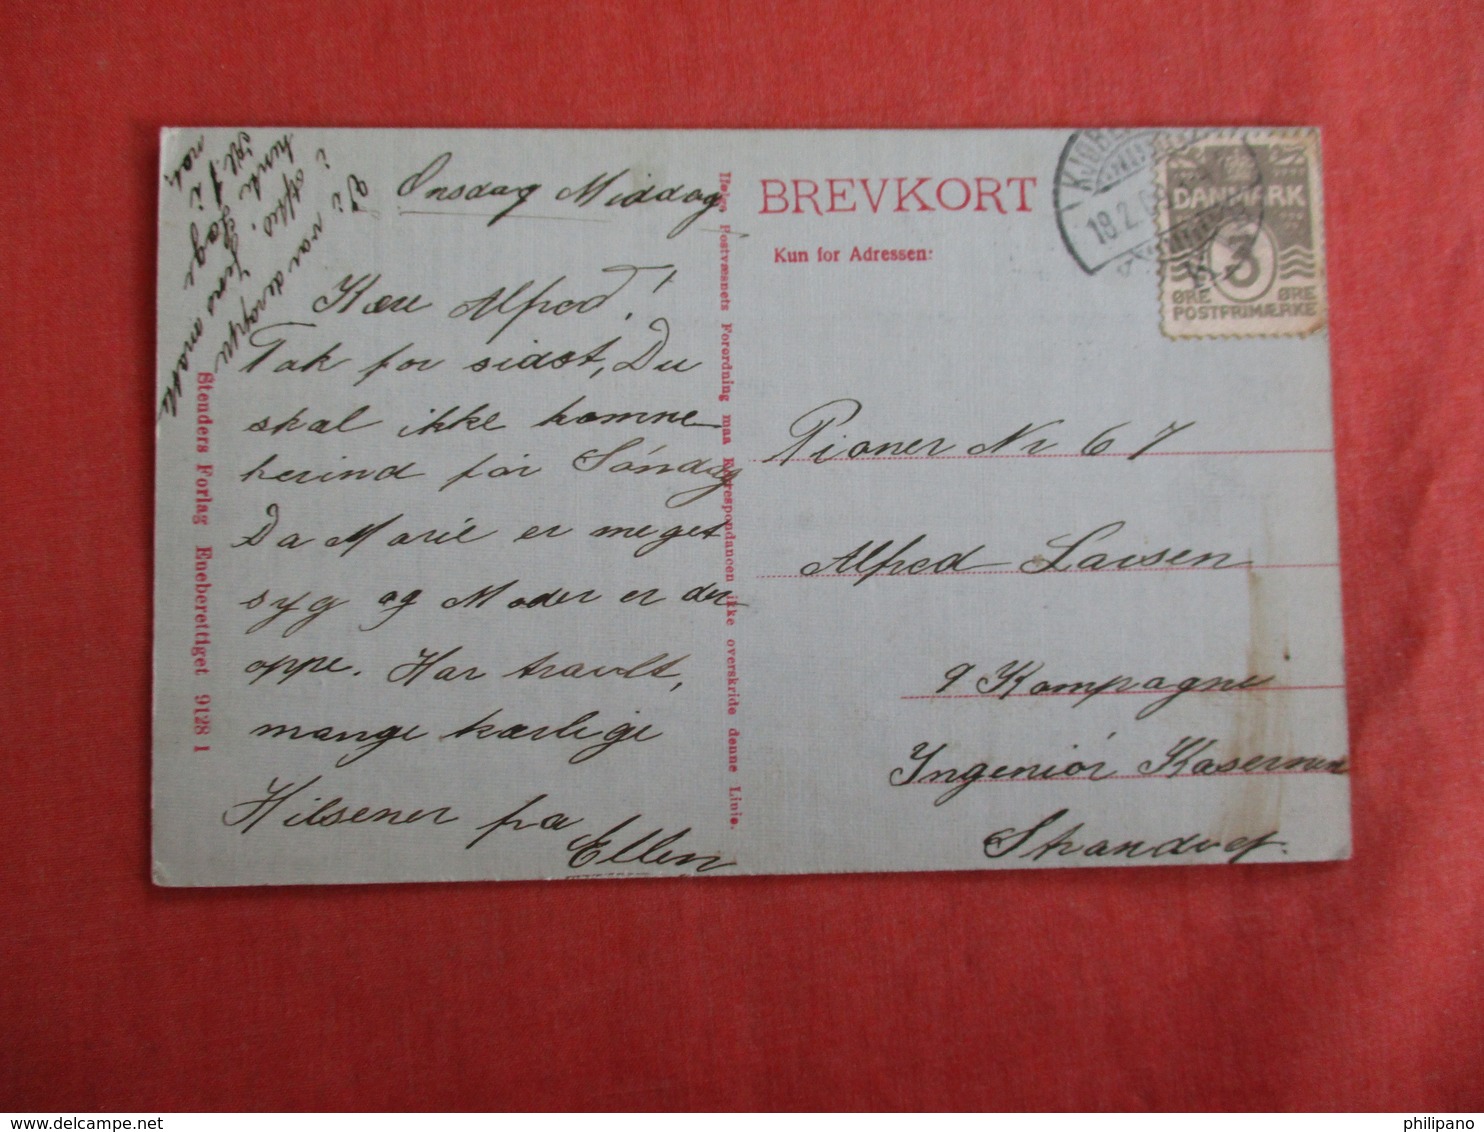 Onsdag Middag
Kære Alfred!
Tak for sidst, Du
skal ikke komme
herind før Søndag
Da Marie er meget
syg og Moder er der
oppe. Har travlt,
mange kærlige
Hilsener fra
Ellen
Vi var deroppe
i
hente
Kl. 1 i
nat.
Stenders Forlag Eneberettiget 9128 I
Ifølge Postvæsnets Forordning maa Korrespondancen ikke overskride denne Linie.
BREVKORT
Kun for Adressen:
KJØBEN
18.2.0
DANMARK
3
ØRE ØRE
POSTFRIMÆRKE
Pioner Nr 67
Alfred Larsen
9 Kompagni
Ingeniør Kasernen
Strandvej.
philipano
delcampe.net